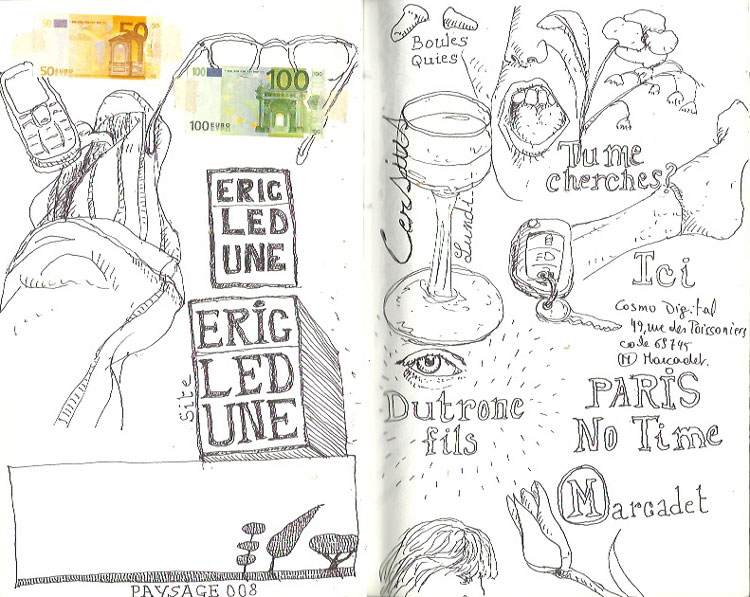 50
50
50 EURO
100
100
100
100 EURO
ERIC
LED
UNE
ERIG
LED
UNE
Site
PAYSAGE 008
Boules
Quies
Tu me
cherches?
Lundi
Ici
Cosmo Digital
49, rue des Poissoniers
code 69745
(M) Marcadet.
Dutronc
fils
PARIS
No Time
Marcadet